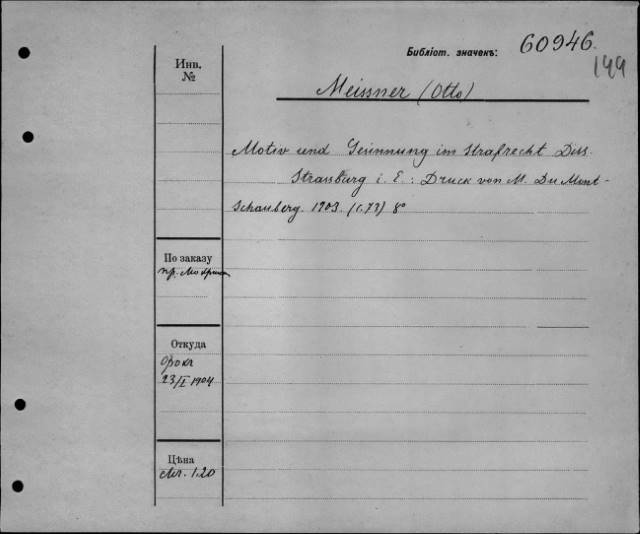 Инв.
№
Библіот. значекъ: 60946.
199
Meissner (Otto)
Motiv und Gesinnung im Strafrecht Diss.
Strassburg i. E.: Druck von M. Du Mont-
Schauberg. 1903. (c.73) 8º
По заказу
пр.
Откуда
Фокъ
23/I 1904
Цѣна
Мк. 1.20